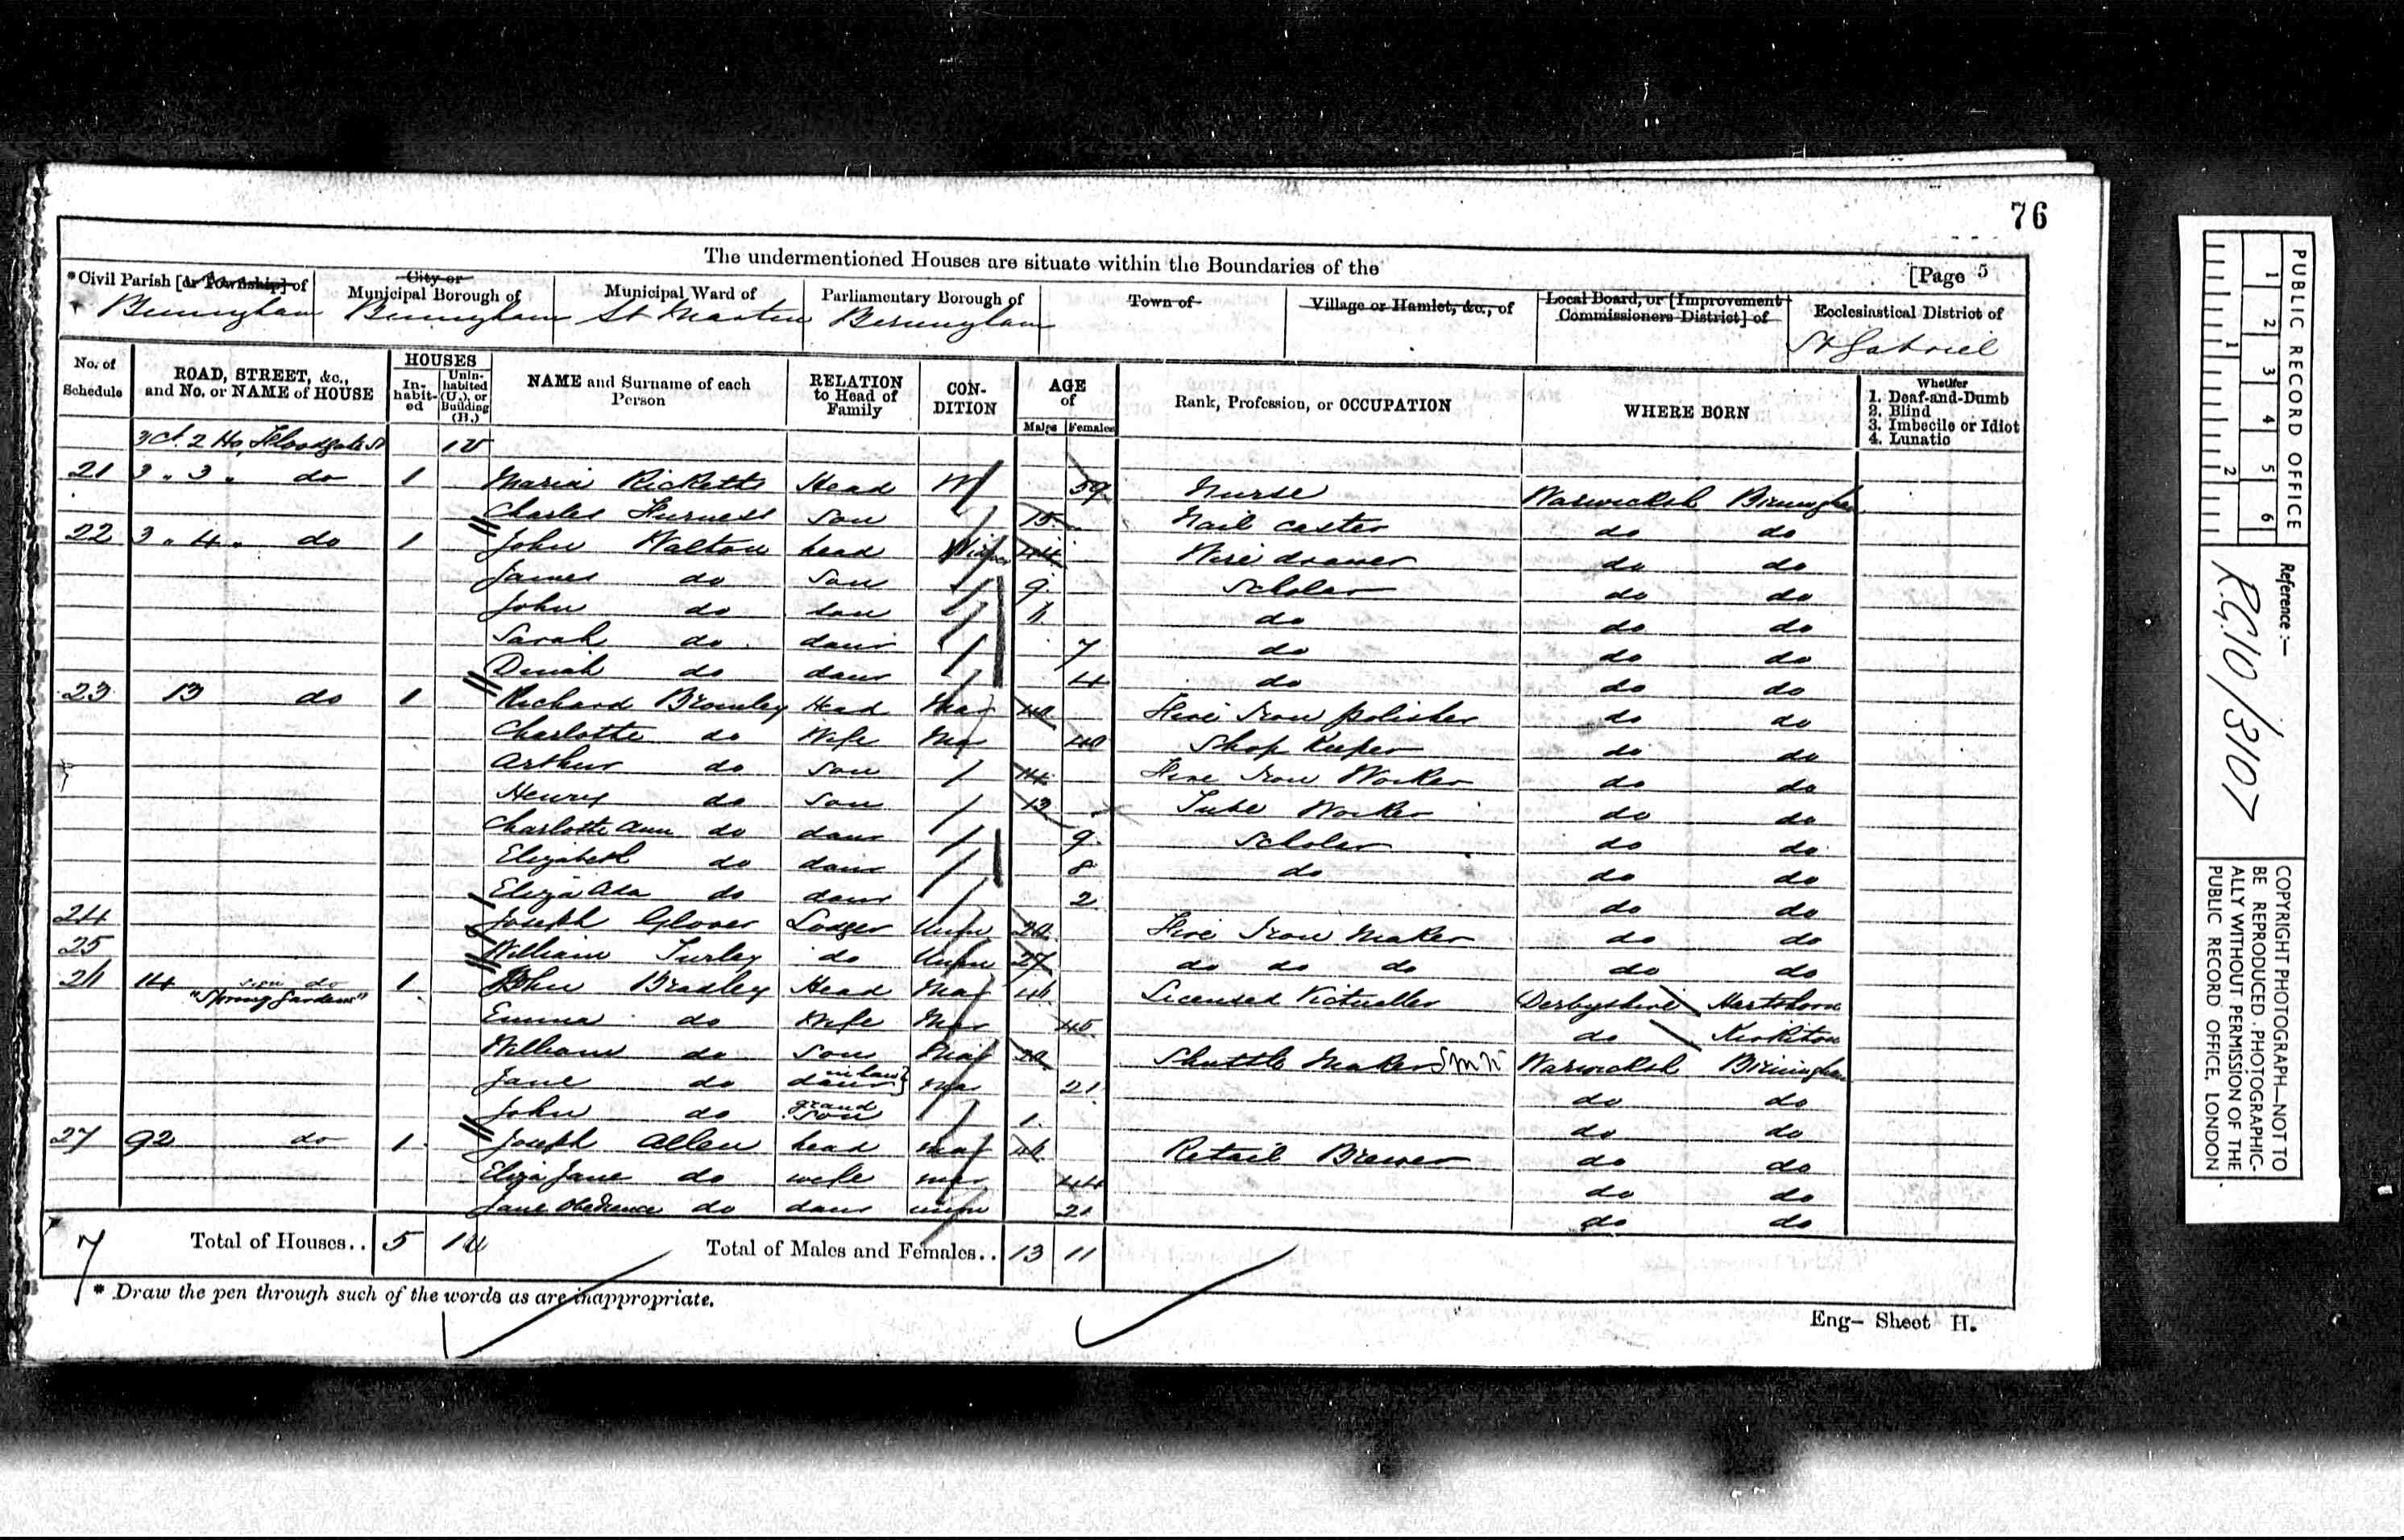 76
The undermentioned Houses are situate within the Boundaries of the
[Page 5
*Civil Parish [or Township] of
City or Municipal Borough of
Municipal Ward of
Parliamentary Borough of
Town of
Village or Hamlet, &c., of
Local Board, or [Improvement Commissioners District] of
Ecclesiastical District of
Birmingham Birmingham St Martin Birmingham St Gabriel
No. of Schedule
ROAD, STREET, &c., and No. or NAME of HOUSE
HOUSES
In-habit-ed
Unin-habited (U.), or Building (B.)
NAME and Surname of each Person
RELATION to Head of Family
CON-DITION
AGE of
Males Females
Rank, Profession, or OCCUPATION
WHERE BORN
Whether
1. Deaf-and-Dumb
2. Blind
3. Imbecile or Idiot
4. Lunatic
3 ct. 2 Ho, Floodgate St 1 U
21 3 " 3 " do 1 Maria Ricketts Head W 59 Nurse Warwicksh Birmingham
Charles Furness Son 15 Nail caster do do
22 3 " 4 " do 1 John Walton head 44 Wire drawer do do
James do Son 9 Scholar do do
John do son do do do
Sarah do daur 7 do do do
Dinah do daur 4 do do do
23 13 do 1 Richard Bromley Head Mar 40 Fire Iron polisher do do
Charlotte do Wife Mar 40 Shop Keeper do do
Arthur do Son 14 Fire Iron Worker do do
Henry do Son 12 Tube Worker do do
Charlotte Ann do daur 9 Scholar do do
Elizabeth do daur 8 do do do
Eliza Ada do daur 2 do do
24 Joseph Glover Lodger Unm 20 Fire Iron Maker do do
25 William Turley do Unm 27 do do do do do
26 14 sign do "Spring Gardens" 1 John Bradley Head Mar 46 Licensed Victualler Derbyshire Hartshorn
Emma do Wife Mar 45 do
William do Son Mar 20 Shuttle Maker Warwicksh Birmingham
Jane do daur in law Mar 21 do do
John do grand son 1 do do
27 92 do 1 Joseph Allen head mar 46 Retail Brewer do do
Eliza Jane do wife mar 44 do do
Jane Obedience do daur unm 21 do do
7 Total of Houses.. 5 1 U Total of Males and Females.. 13 11
* Draw the pen through such of the words as are inappropriate.
Eng- Sheet H.
PUBLIC RECORD OFFICE
1 2 3 4 5 6
1 2
Reference:-
R.G.10/3107
COPYRIGHT PHOTOGRAPH-NOT TO
BE REPRODUCED PHOTOGRAPHIC-
ALLY WITHOUT PERMISSION OF THE
PUBLIC RECORD OFFICE, LONDON